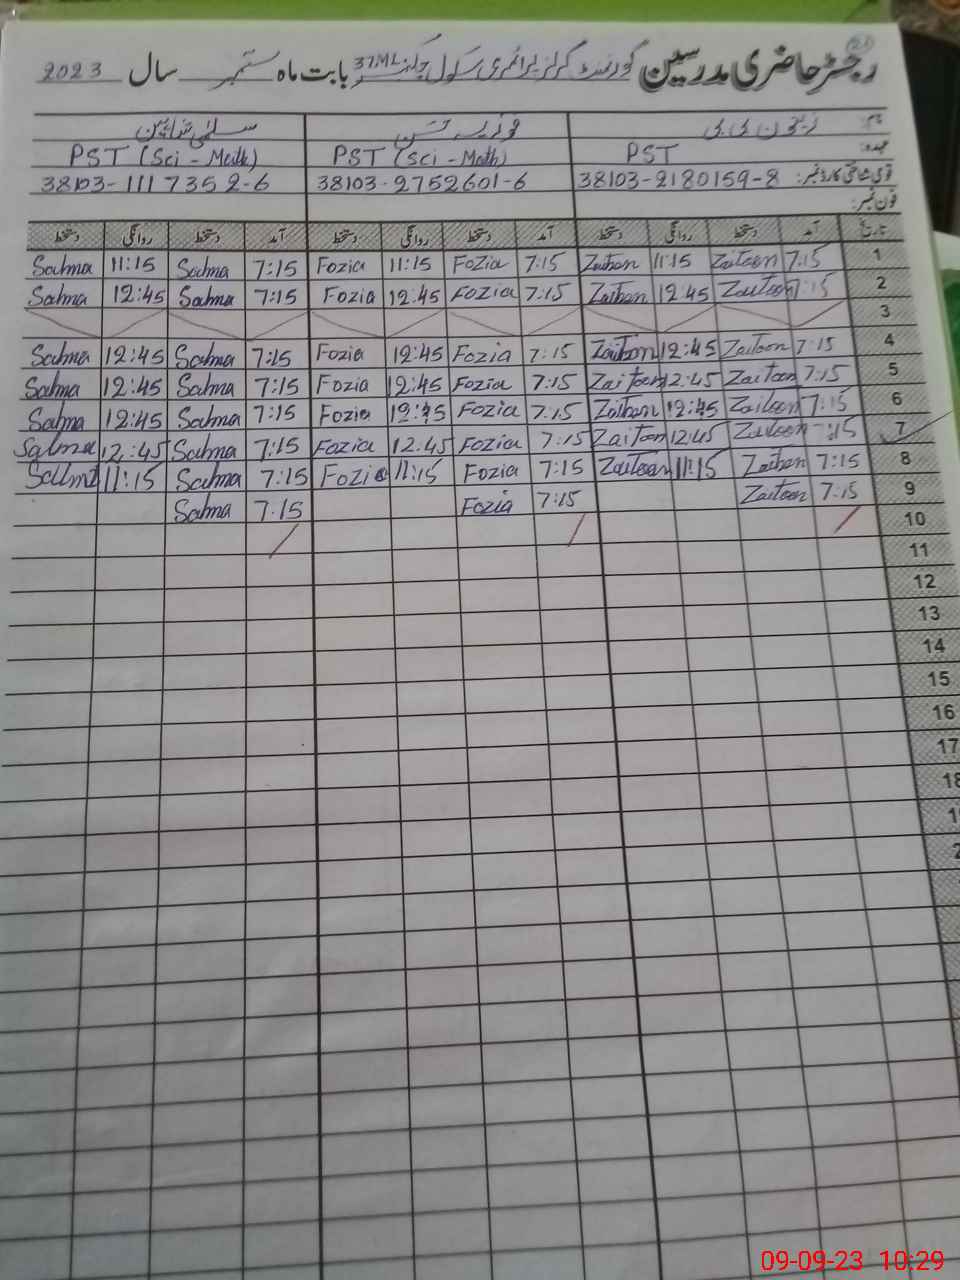 رجسٹر حاضری مدرسین گورنمنٹ گرلز پرائمری سکول 37ML بابت ماہ ستمبر سال 2023
نام: زیتون بی بی فوزیہ سلمیٰ
عہدہ: PST PST (Sci - Math) PST (Sci - Math)
قومی شناختی کارڈ نمبر: 38103-2180159-8 38103-2752601-6 38103-1117352-6
فون نمبر:
تاریخ آمد دستخط روانگی دستخط آمد دستخط روانگی دستخط آمد دستخط روانگی دستخط
1 7:15 Zaitoon 11:15 Zaitoon 7:15 Fozia 11:15 Fozia 7:15 Salma 11:15 Salma
2 7:15 Zaitoon 12:45 Zaitoon 7:15 Fozia 12:45 Fozia 7:15 Salma 12:45 Salma
3
4 7:15 Zaitoon 12:45 Zaitoon 7:15 Fozia 12:45 Fozia 7:15 Salma 12:45 Salma
5 7:15 Zaitoon 12:45 Zaitoon 7:15 Fozia 12:45 Fozia 7:15 Salma 12:45 Salma
6 7:15 Zaitoon 12:45 Zaitoon 7:15 Fozia 12:45 Fozia 7:15 Salma 12:45 Salma
7 7:15 Zaitoon 12:45 Zaitoon 7:15 Fozia 12:45 Fozia 7:15 Salma 12:45 Salma
8 7:15 Zaitoon 11:15 Zaitoon 7:15 Fozia 11:15 Fozia 7:15 Salma 11:15 Salma
9 7:15 Zaitoon 7:15 Fozia 7:15 Salma
10
11
12
13
14
15
16
17
18
09-09-23 10:29